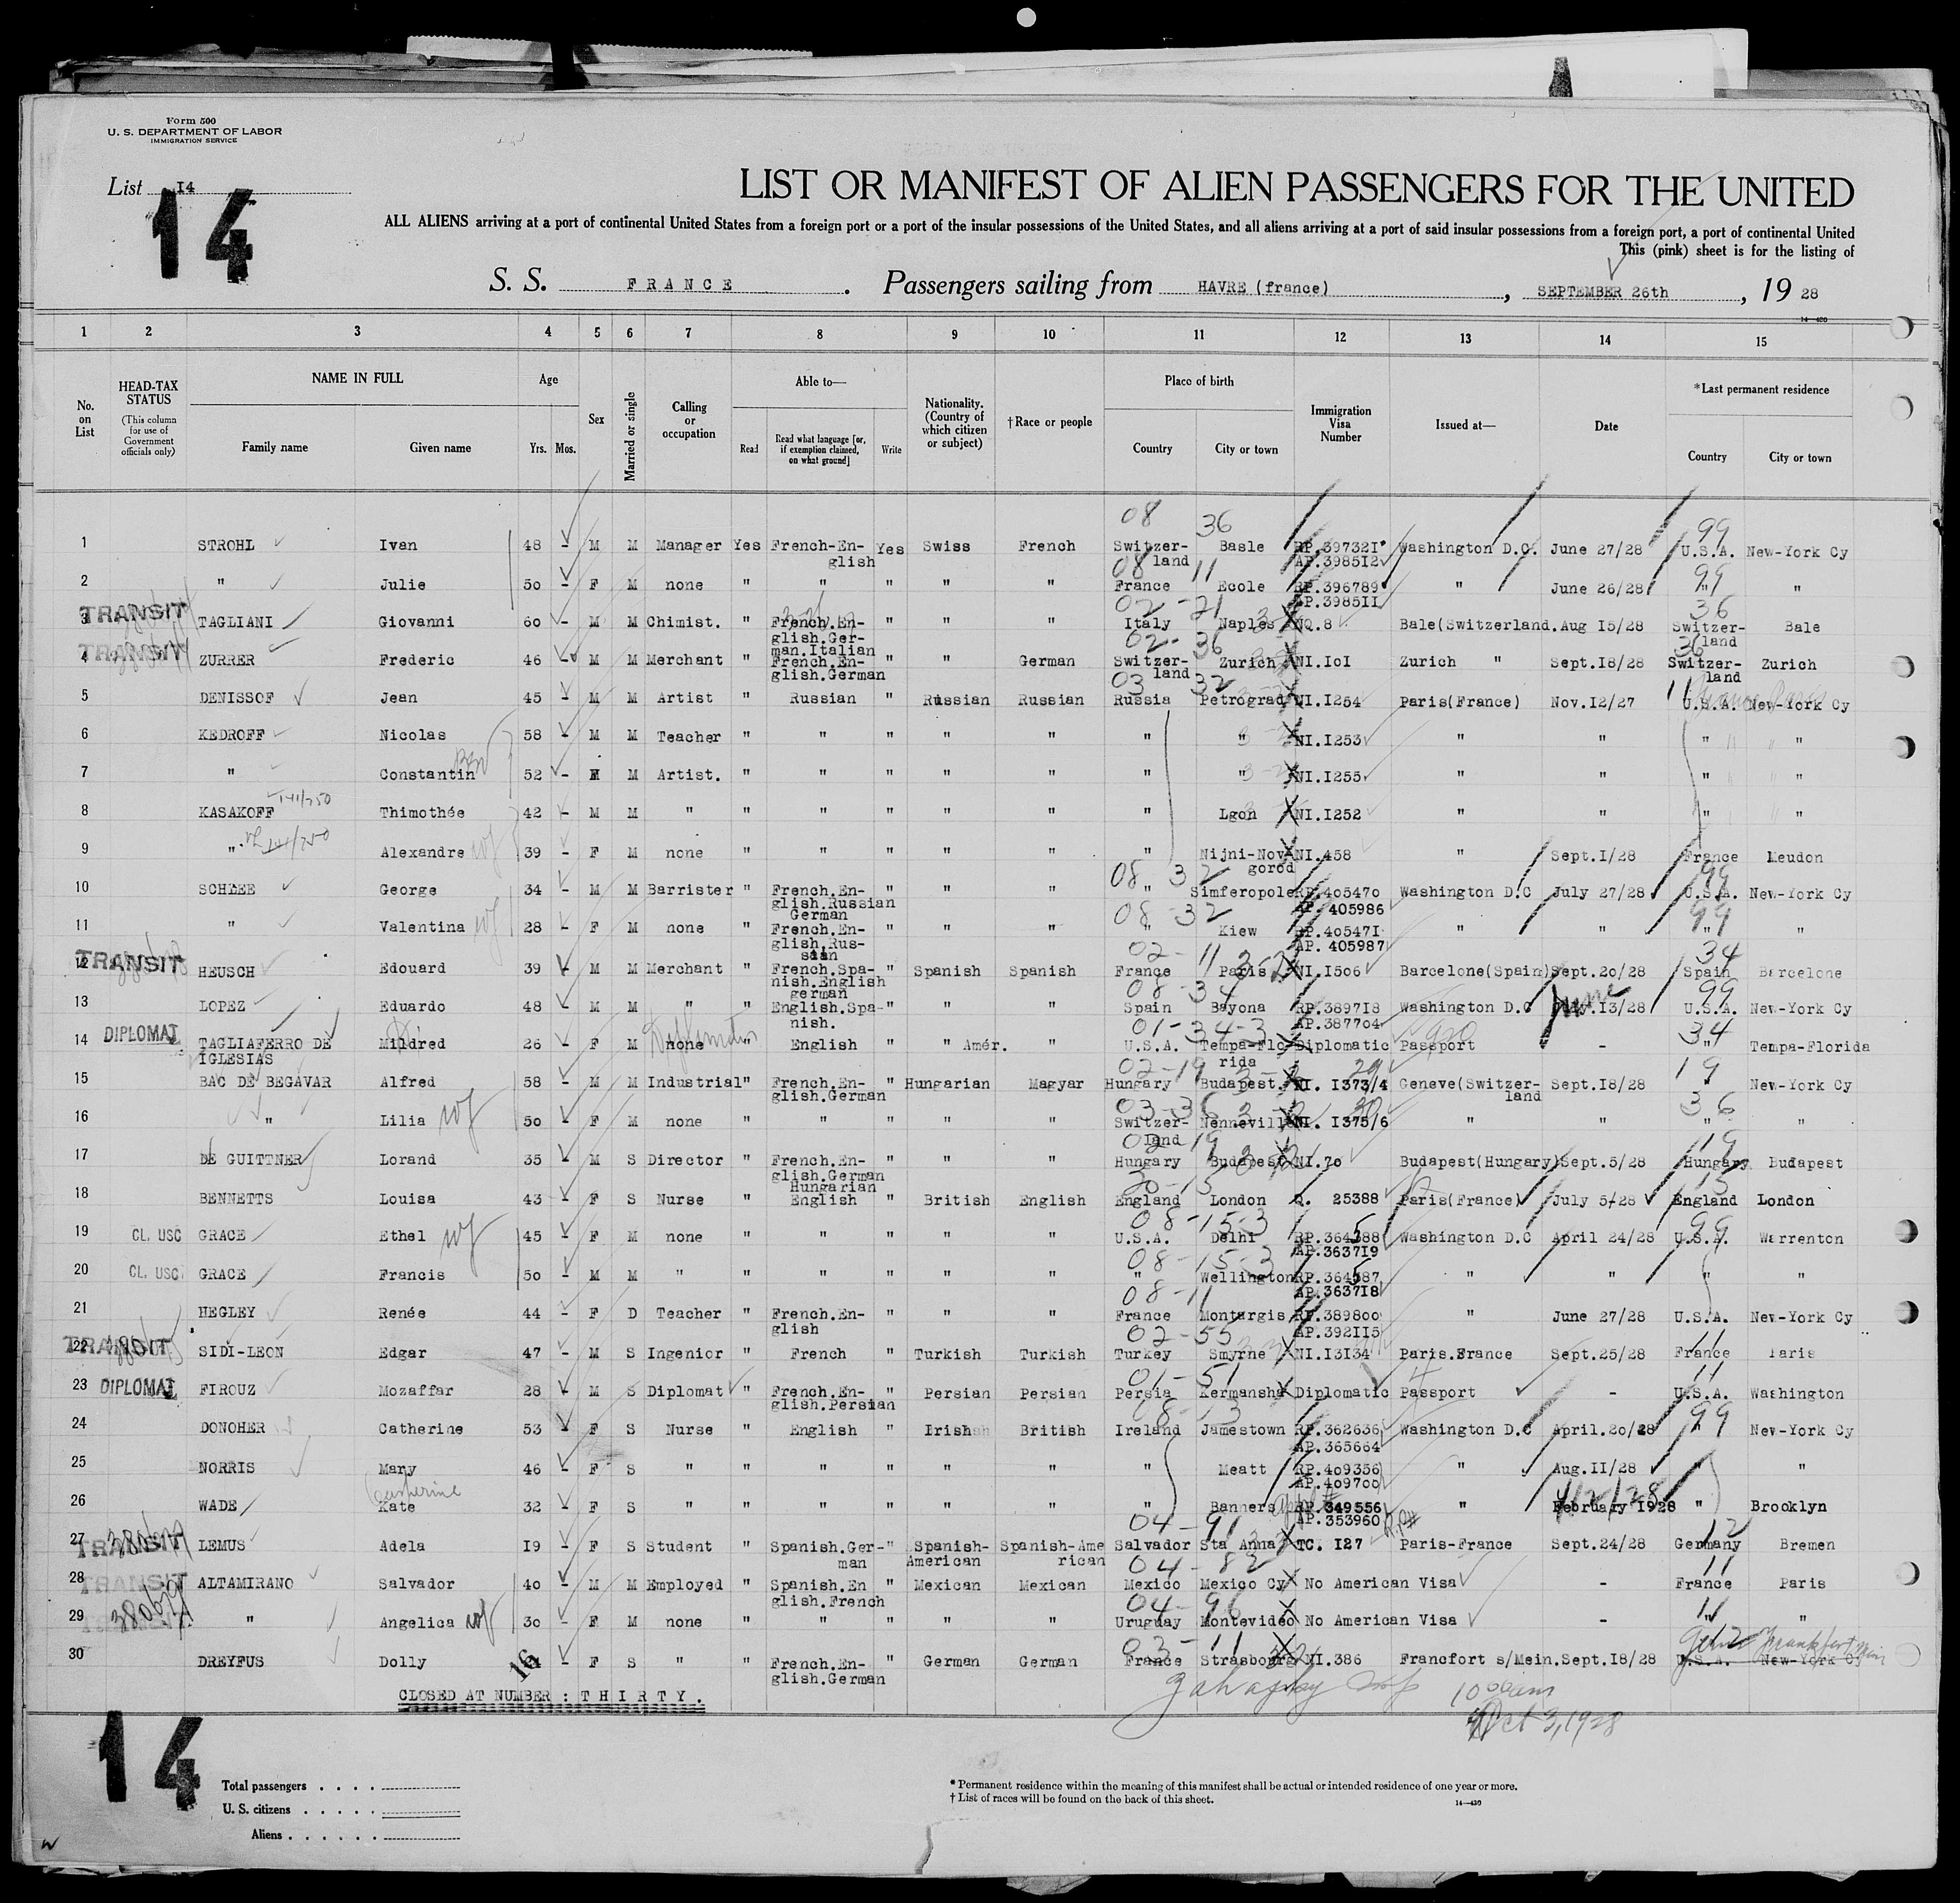 Form 500
U. S. DEPARTMENT OF LABOR
IMMIGRATION SERVICE
List I4
14
LIST OR MANIFEST OF ALIEN PASSENGERS FOR THE UNITED
ALL ALIENS arriving at a port of continental United States from a foreign port or a port of the insular possessions of the United States, and all aliens arriving at a port of said insular possessions from a foreign port, a port of continental United
This (pink) sheet is for the listing of
S. S. FRANCE . Passengers sailing from HAVRE (france) , SEPTEMBER 26th , 19 28
14—430
1 2 3 4 5 6 7 8 9 10 11 12 13 14 15
No. on List HEAD-TAX STATUS (This column for use of Government officials only) NAME IN FULL Family name Given name Age Yrs. Mos. Sex Married or single Calling or occupation Able to— Read Read what language [or, if exemption claimed, on what ground] Write Nationality. (Country of which citizen or subject) †Race or people Place of birth Country City or town Immigration Visa Number Issued at— Date *Last permanent residence Country City or town
08 36 99
1 STROHL Ivan 48 - M M Manager Yes French-English Yes Swiss French Switzerland Basle RP.39732I AP.3985I2 Washington D.C. June 27/28 U.S.A. New-York Cy
08 11 99
2 " Julie 50 - F M none " " " " " France Ecole RP.396789 AP.3985II " June 26/28 " "
02-21 36
TRANSIT 3 TAGLIANI Giovanni 60 - M M Chimist. " French.English.German.Italian " " " Italy Naples NQ.8 Bale(Switzerland. Aug I5/28 Switzerland Bale
02-36 36
TRANSIT 4 ZURRER Frederic 46 - M M Merchant " French.English.German " " German Switzerland Zurich NI.IoI Zurich " Sept.I8/28 Switzerland Zurich
03 32 11
5 DENISSOF Jean 45 - M M Artist " Russian " Russian Russian Russia Petrograd NI.I254 Paris(France) Nov.I2/27 U.S.A. New-York Cy
6 KEDROFF Nicolas 58 - M M Teacher " " " " " " " NI.I253 " " " "
7 " Constantin 52 - M M Artist. " " " " " " " NI.I255 " " " "
8 KASAKOFF Thimothée 42 - M M " " " " " " " Lgon NI.I252 " " " "
9 " Alexandre wf 39 - F M none " " " " " " Nijni-Novgorod NI.458 " Sept.I/28 France Meudon
08 32 99
10 SCHLEE George 34 - M M Barrister " French.English.Russian German " " " " Simferopole RP.405470 AP. 405986 Washington D.C July 27/28 U.S.A. New-York Cy
08-32 99
11 " Valentina wf 28 - F M none " French.English.Russian " " " " Kiew RP.40547I AP. 405987 " " " "
02-11 34
TRANSIT 12 HEUSCH Edouard 39 - M M Merchant " French.Spanish.English german " Spanish Spanish France Paris NI.I506 Barcelone(Spain) Sept.20/28 Spain Barcelone
08-34 99
13 LOPEZ Eduardo 48 - M M " " English.Spanish. " " " Spain Bayona RP.3897I8 AP.387704 Washington D.C June I3/28 U.S.A. New-York Cy
01-34-3 34
DIPLOMAT 14 TAGLIAFERRO DE IGLESIAS Mildred 26 - F M none " English " " Amér. " U.S.A. Tempa-Florida Diplomatic Passport - " Tempa-Florida
02-19 19
15 BAC DE BEGAVAR Alfred 58 - M M Industrial " French.English.German " Hungarian Magyar Hungary Budapest. NI. I373/4 Geneve(Switzerland Sept.I8/28 " New-York Cy
03-36 36
16 " Lilia wf 50 - F M none " " " " " Switzerland Nenneville NI. I375/6 " " " "
02-19 19
17 DE GUITTNER Lorand 35 - M S Director " French.English.German Hungarian " " " Hungary Budapest NI.70 Budapest(Hungary) Sept.5/28 Hungary Budapest
18 BENNETTS Louisa 43 - F S Nurse " English " British English England London Q. 25388 Paris(France) July 5/28 England London
08-15-3 99
19 CL. USC GRACE Ethel wf 45 - F M none " " " " " U.S.A. Delhi RP.364588 AP.3637I9 Washington D.C April 24/28 U.S.A. Warrenton
08-15-3
20 CL. USC GRACE Francis 50 - M M " " " " " " " Wellington RP.364587 AP.3637I8 " " " "
08-11
21 HEGLEY Renée 44 - F D Teacher " French.English " " " France Montargis RP.389800 AP.392II5 " June 27/28 U.S.A. New-York Cy
02-55 11
TRANSIT 22 SIDI-LEON Edgar 47 - M S Ingenior " French " Turkish Turkish Turkey Smyrne NI.I3I34 Paris.France Sept.25/28 France Paris
01-51 11
23 DIPLOMAT FIROUZ Mozaffar 28 - M S Diplomat " French.English.Persian " Persian Persian Persia Kermansha Diplomatic Passport - U.S.A. Washington
08-13 99
24 DONOHER Catherine 53 - F S Nurse " English " Irish British Ireland Jamestown RP.362636 AP.365664 Washington D.C April.20/28 " New-York Cy
25 NORRIS Mary 46 - F S " " " " " " " Meatt RP.409356 AP.409700 " Aug.II/28 " "
Catherine 4/2/28
26 WADE Kate 32 - F S " " " " " " " Banners RP.349556 AP.353960 " February I928 " Brooklyn
04-91 12
TRANSIT 27 LEMUS Adela I9 - F S Student " Spanish.German " Spanish-American Spanish-American Salvador Sta Anna TC. I27 Paris-France Sept.24/28 Germany Bremen
04-82 11
TRANSIT 28 ALTAMIRANO Salvador 40 - M M Employed " Spanish.English.French " Mexican Mexican Mexico Mexico Cy No American Visa - France Paris
04-96 11
29 " Angelica wf 30 - F M none " " " " " Uruguay Montevideo No American Visa - " "
03-11 Frankfort
30 DREYFUS Dolly 16 - F S " " French.English.German " German German France Strasbourg NI.386 Francfort s/Mein. Sept.I8/28 U.S.A. New-York Cy
CLOSED AT NUMBER : THIRTY.
10 00am
Oct 3, 1928
14
Total passengers
U. S. citizens
Aliens
* Permanent residence within the meaning of this manifest shall be actual or intended residence of one year or more.
† List of races will be found on the back of this sheet.
14—430